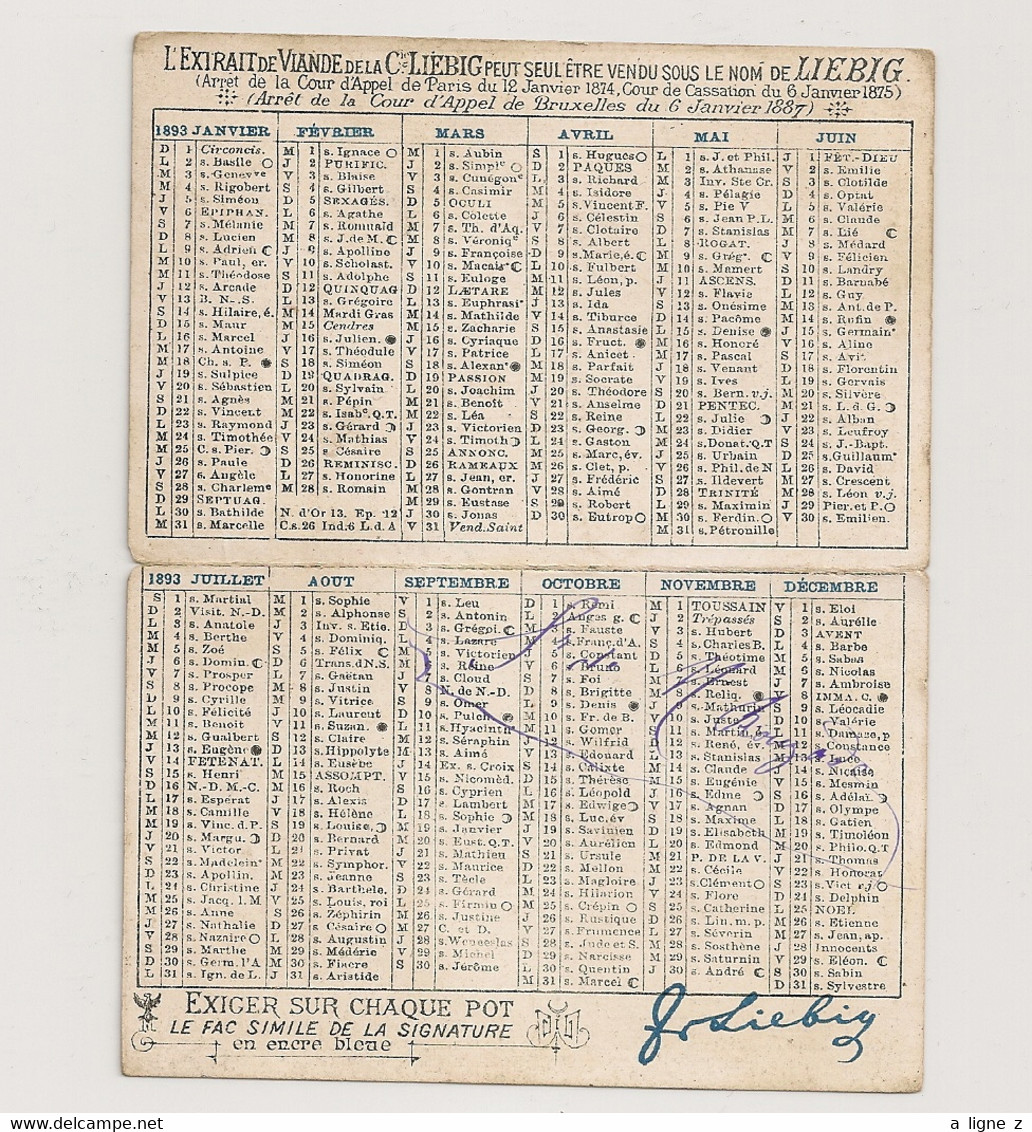 L'EXTRAIT DE VIANDE DE LA Cie LIEBIG PEUT SEUL ÊTRE VENDU SOUS LE NOM DE LIEBIG.
(Arrêt de la Cour d'Appel de Paris du 12 Janvier 1874, Cour de Cassation du 6 Janvier 1875)
(Arrêt de la Cour d'Appel de Bruxelles du 6 Janvier 1887)
1893 JANVIER
D 1 Circoncis.
L 2 s. Basile
M 3 s. Genevve
M 4 s. Rigobert
J 5 s. Siméon
V 6 EPIPHAN.
S 7 s. Mélanie
D 8 s. Lucien
L 9 s. Adrien
M 10 s. Paul, er.
M 11 s. Théodose
J 12 s. Arcade
V 13 B. N.-S.
S 14 s. Hilaire, é.
D 15 s. Maur
L 16 s. Marcel
M 17 s. Antoine
M 18 Ch. s. P.
J 19 s. Sulpice
V 20 s. Sébastien
S 21 s. Agnès
D 22 s. Vincent
L 23 s. Raymond
M 24 s. Timothée
M 25 C. s. Pier.
J 26 s. Paule
V 27 s. Angèle
S 28 s. Charleme
D 29 SEPTUAG.
L 30 s. Bathilde
M 31 s. Marcelle
FÉVRIER
M 1 s. Ignace
J 2 PURIFIC.
V 3 s. Blaise
S 4 s. Gilbert
D 5 SEXAGÉS.
L 6 s. Agathe
M 7 s. Romuald
M 8 s. J. de M.
J 9 s. Apolline
V 10 s. Scholast.
S 11 s. Adolphe
D 12 QUINQUAG
L 13 s. Grégoire
M 14 Mardi Gras
M 15 Cendres
J 16 s. Julien.
V 17 s. Théodule
S 18 s. Siméon
D 19 QUADRAG.
L 20 s. Sylvain
M 21 s. Pépin
M 22 s. Isabe. Q.T.
J 23 s. Gérard
V 24 s. Mathias
S 25 s. Césaire
D 26 REMINISC.
L 27 s. Honorine
M 28 s. Romain
N. d'Or 13. Ep. 12
C.s. 26 Ind. 6 L.d. A
MARS
M 1 s. Aubin
J 2 s. Simple
V 3 s. Cunégone
S 4 s. Casimir
D 5 OCULI
L 6 s. Colette
M 7 s. Th. d'Aq.
M 8 s. Véroniqe
J 9 s. Françoise
V 10 s. Macais
S 11 s. Euloge
D 12 LÆTARE
L 13 s. Euphrasi
M 14 s. Mathilde
M 15 s. Zacharie
J 16 s. Cyriaque
V 17 s. Patrice
S 18 s. Alexan
D 19 PASSION
L 20 s. Joachim
M 21 s. Benoît
M 22 s. Léa
J 23 s. Victorien
V 24 s. Timoth
S 25 ANNONC.
D 26 RAMEAUX
L 27 s. Jean, er.
M 28 s. Gontran
M 29 s. Eustase
J 30 s. Jonas
V 31 Vend. Saint
AVRIL
S 1 s. Hugues
D 2 PAQUES
L 3 s. Richard
M 4 s. Isidore
M 5 s. Vincent F.
J 6 s. Célestin
V 7 s. Clotaire
S 8 s. Albert
D 9 s. Marie, é.
L 10 s. Fulbert
M 11 s. Léon, p.
M 12 s. Jules
J 13 s. Ida
V 14 s. Tiburce
S 15 s. Anastasie
D 16 s. Fruct.
L 17 s. Anicet
M 18 s. Parfait
M 19 s. Socrate
J 20 s. Théodore
V 21 s. Anselme
S 22 s. Reine
D 23 s. Georg.
L 24 s. Gaston
M 25 s. Marc, év.
M 26 s. Clet, p.
J 27 s. Frédéric
V 28 s. Aimé
S 29 s. Robert
D 30 s. Eutrop
MAI
L 1 s. J. et Phil.
M 2 s. Athanase
M 3 Inv. Ste Cr.
J 4 s. Pélagie
V 5 s. Pie V
S 6 s. Jean P.L.
D 7 s. Stanislas
L 8 ROGAT.
M 9 s. Grég
M 10 s. Mamert
J 11 ASCENS.
V 12 s. Flavie
S 13 s. Onésime
D 14 s. Pacôme
L 15 s. Denise
M 16 s. Honoré
M 17 s. Pascal
J 18 s. Venant
V 19 s. Ives
S 20 s. Bern. v.j.
D 21 PENTEC.
L 22 s. Julie
M 23 s. Didier
M 24 s. Donat. Q.T
J 25 s. Urbain
V 26 s. Phil. de N
S 27 s. Ildevert
D 28 TRINITÉ
L 29 s. Maximin
M 30 s. Ferdin.
M 31 s. Pétronille
JUIN
J 1 FÊT.-DIEU
V 2 s. Emilie
S 3 s. Clotilde
D 4 s. Optat
L 5 s. Valérie
M 6 s. Claude
M 7 s. Lié
J 8 s. Médard
V 9 s. Félicien
S 10 s. Landry
D 11 s. Barnabé
L 12 s. Guy
M 13 s. Ant. de P.
M 14 s. Rufin
J 15 s. Germain
V 16 s. Aline
S 17 s. Avit
D 18 s. Florentin
L 19 s. Gervais
M 20 s. Silvère
M 21 s. L. d. G.
J 22 s. Alban
V 23 s. Leufroy
S 24 s. J.-Bapt.
D 25 s. Guillaum
L 26 s. David
M 27 s. Crescent
M 28 s. Léon v.j.
J 29 s. Pier. et P.
V 30 s. Emilien.
1893 JUILLET
S 1 s. Martial
D 2 Visit. N.-D.
L 3 s. Anatole
M 4 s. Berthe
M 5 s. Zoé
J 6 s. Domin.
V 7 s. Prosper
S 8 s. Procope
D 9 s. Cyrille
L 10 s. Félicité
M 11 s. Benoit
M 12 s. Gualbert
J 13 s. Eugène
V 14 FETE NAT.
S 15 s. Henri
D 16 N.-D. M.-C.
L 17 s. Espérat
M 18 s. Camille
M 19 s. Vinc. d. P.
J 20 s. Margu.
V 21 s. Victor
S 22 s. Madelein
D 23 s. Apollin.
L 24 s. Christine
M 25 s. Jacq. l. M
M 26 s. Anne
J 27 s. Nathalie
V 28 s. Nazaire
S 29 s. Marthe
D 30 s. Germ. l'A
L 31 s. Ign. de L.
AOUT
M 1 s. Sophie
M 2 s. Alphonse
J 3 Inv. s. Etie.
V 4 s. Dominiq.
S 5 s. Félix
D 6 Trans. d N.S.
L 7 s. Gaëtan
M 8 s. Justin
M 9 s. Vitrice
J 10 s. Laurent
V 11 s. Suzan.
S 12 s. Claire
D 13 s. Hippolyte
L 14 s. Eusèbe
M 15 ASSOMPT.
M 16 s. Roch
J 17 s. Alexis
V 18 s. Hélène
S 19 s. Louise
D 20 s. Bernard
L 21 s. Privat
M 22 s. Symphor.
M 23 s. Jeanne
J 24 s. Barthele.
V 25 s. Louis, roi
S 26 s. Zéphirin
D 27 s. Césaire
L 28 s. Augustin
M 29 s. Médéric
M 30 s. Fiacre
J 31 s. Aristide
SEPTEMBRE
V 1 s. Leu
S 2 s. Antonin
D 3 s. Grégoi.
L 4 s. Lazare
M 5 s. Victorien
M 6 s. Reine
J 7 s. Cloud
V 8 N. de N.-D.
S 9 s. Omer
D 10 s. Pulch.
L 11 s. Hyacinth
M 12 s. Séraphin
M 13 s. Aimé
J 14 Ex. s. Croix
V 15 s. Nicomèd.
S 16 s. Cyprien
D 17 s. Lambert
L 18 s. Sophie
M 19 s. Janvier
M 20 s. Eust. Q.T.
J 21 s. Mathieu
V 22 s. Maurice
S 23 s. Tècle
D 24 s. Gérard
L 25 s. Firmin
M 26 s. Justine
M 27 C. et D.
J 28 s. Wenceslas
V 29 s. Michel
S 30 s. Jérôme
OCTOBRE
D 1 s. Rémi
L 2 Anges g.
M 3 s. Fauste
M 4 s. Franç. d'A.
J 5 s. Constant
V 6 s. Bruno
S 7 s. Foi
D 8 s. Brigitte
L 9 s. Denis
M 10 s. Fr. de B.
M 11 s. Gomer
J 12 s. Wilfrid
V 13 s. Edouard
S 14 s. Calixte
D 15 s. Thérèse
L 16 s. Léopold
M 17 s. Edwige
M 18 s. Luc, év
J 19 s. Savinien
V 20 s. Aurélien
S 21 s. Ursule
D 22 s. Mellon
L 23 s. Magloire
M 24 s. Hilarion
M 25 s. Crépin
J 26 s. Rustique
V 27 s. Frumence
S 28 s. Jude et S.
D 29 s. Narcisse
L 30 s. Quentin
M 31 s. Marcel
NOVEMBRE
M 1 TOUSSAIN
J 2 Trépassés
V 3 s. Hubert
S 4 s. Charles B.
D 5 s. Théotime
L 6 s. Léonard
M 7 s. Ernest
M 8 s. Reliq.
J 9 s. Mathurin
V 10 s. Juste
S 11 s. Martin
D 12 s. René, év.
L 13 s. Stanislas
M 14 s. Claude
M 15 s. Eugénie
J 16 s. Edme
V 17 s. Agnan
S 18 s. Maxime
D 19 s. Elisabeth
L 20 s. Edmond
M 21 P. DE LA V.
M 22 s. Cécile
J 23 s. Clément
V 24 s. Flore
S 25 s. Catherine
D 26 s. Lin, m. p.
L 27 s. Séverin
M 28 s. Sosthène
M 29 s. Saturnin
J 30 s. André
DÉCEMBRE
V 1 s. Eloi
S 2 s. Aurélie
D 3 AVENT
L 4 s. Barbe
M 5 s. Sabas
M 6 s. Nicolas
J 7 s. Ambroise
V 8 IMMA. C.
S 9 s. Léocadie
D 10 s. Valérie
L 11 s. Damase, p
M 12 s. Constance
M 13 s. Luce
J 14 s. Nicaise
V 15 s. Mesmin
S 16 s. Adélaï
D 17 s. Olympe
L 18 s. Gatien
M 19 s. Timoléon
M 20 s. Philo. Q.T
J 21 s. Thomas
V 22 s. Honorat
S 23 s. Vict v.j
D 24 s. Delphin
L 25 NOEL
M 26 s. Etienne
M 27 s. Jean, ap.
J 28 Innocents
V 29 s. Eléon.
S 30 s. Sabin
D 31 s. Sylvestre
EXIGER SUR CHAQUE POT
LE FAC SIMILE DE LA SIGNATURE
en encre bleue
Jv Liebig
a ligne z